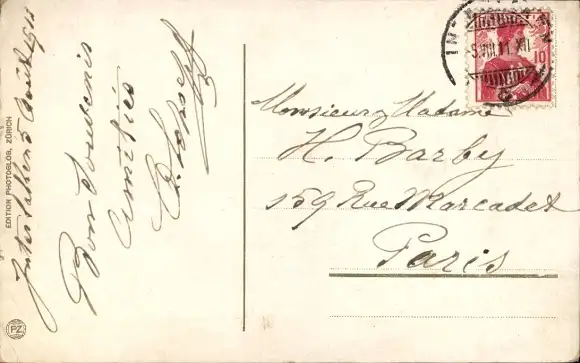 Interlaken 5 Août 1911
Bon Souvenir
Amitiés
EDITION PHOTOGLOB, ZÜRICH
PZ
Monsieur, Madame
H. Barby
159 Rue Marcadet
Paris
10
5.VIII.11.XII